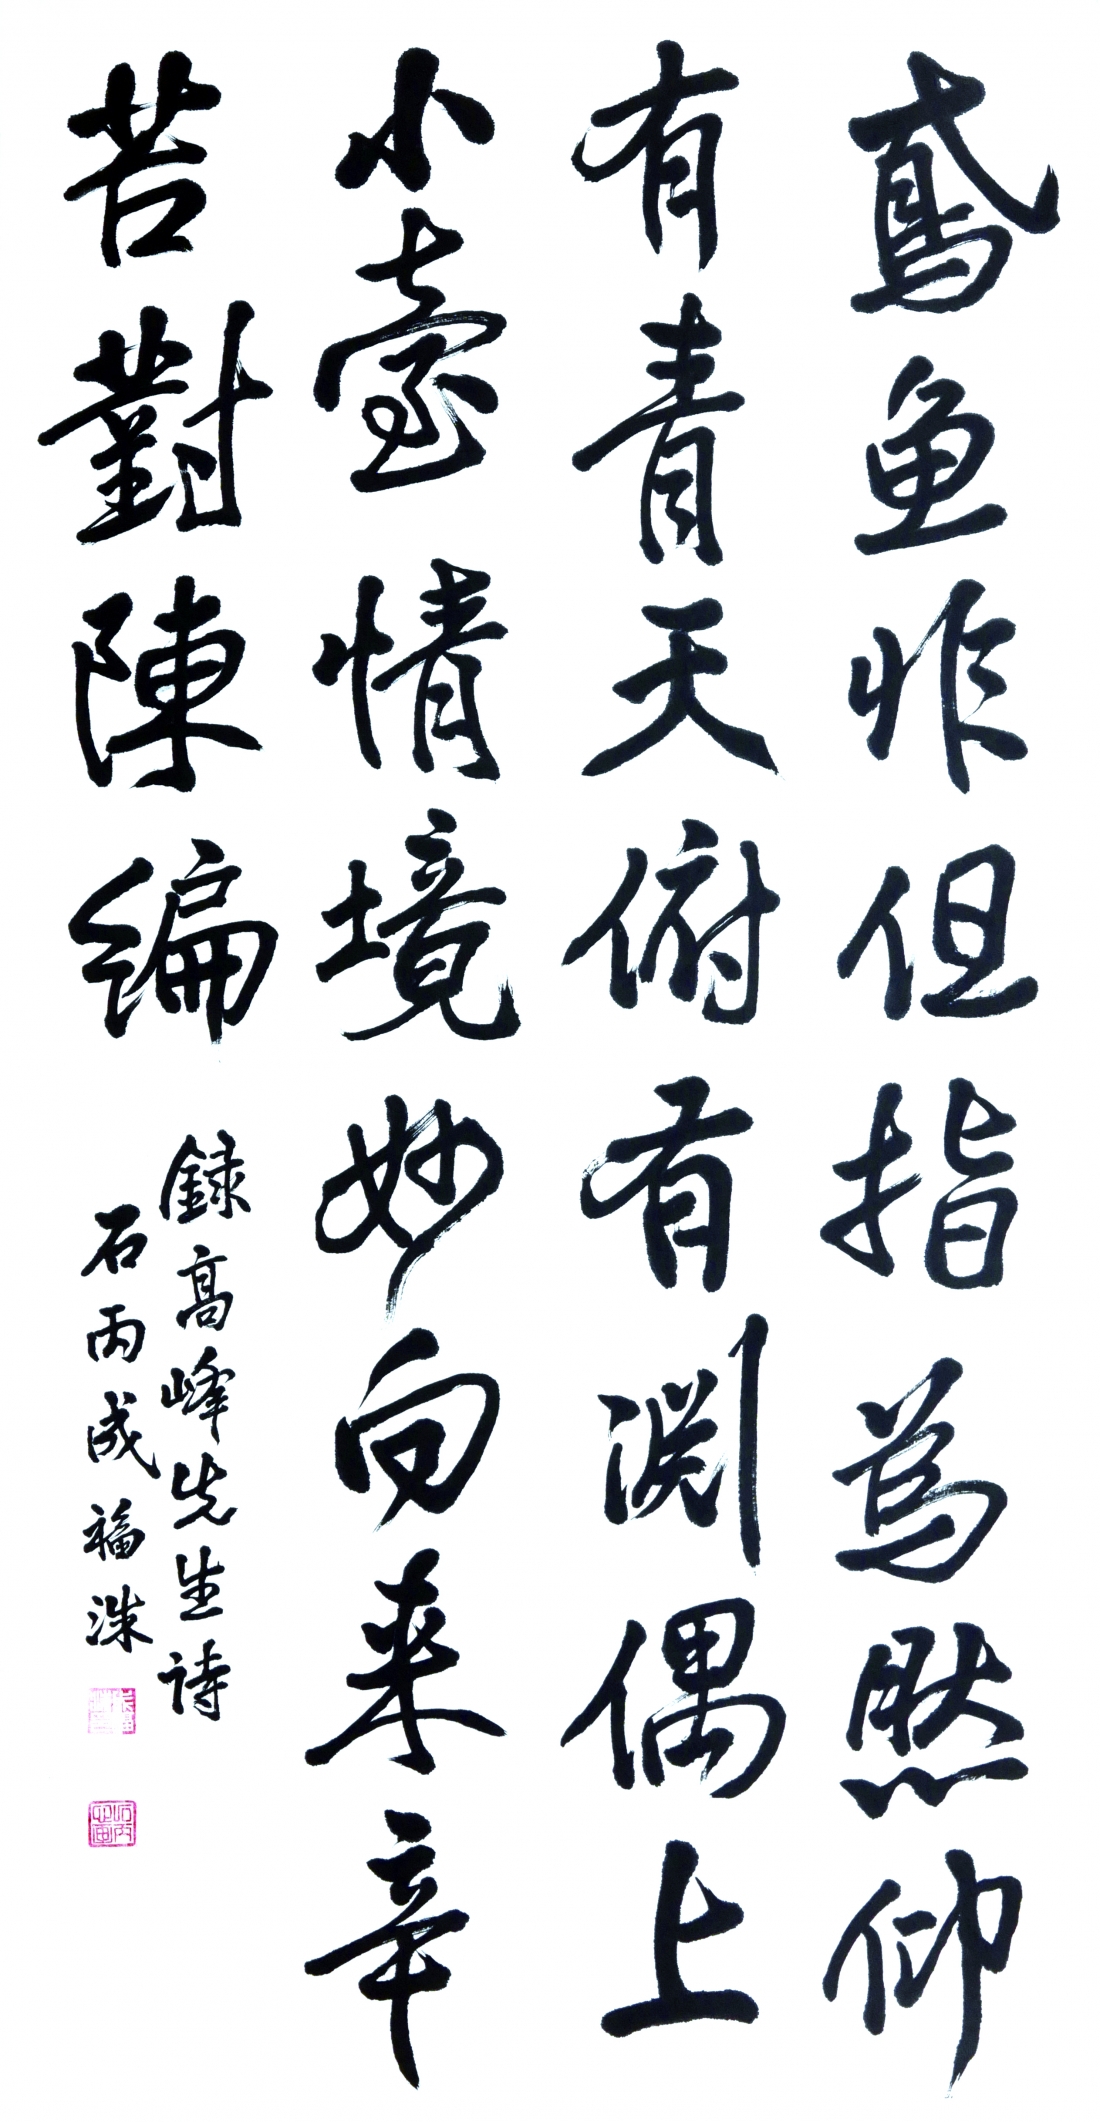 鳶魚非但指爲然仰
有青天俯有淵偶上
小臺情境妙向来辛
苦對陳編
録高峰先生詩
石丙成福洙